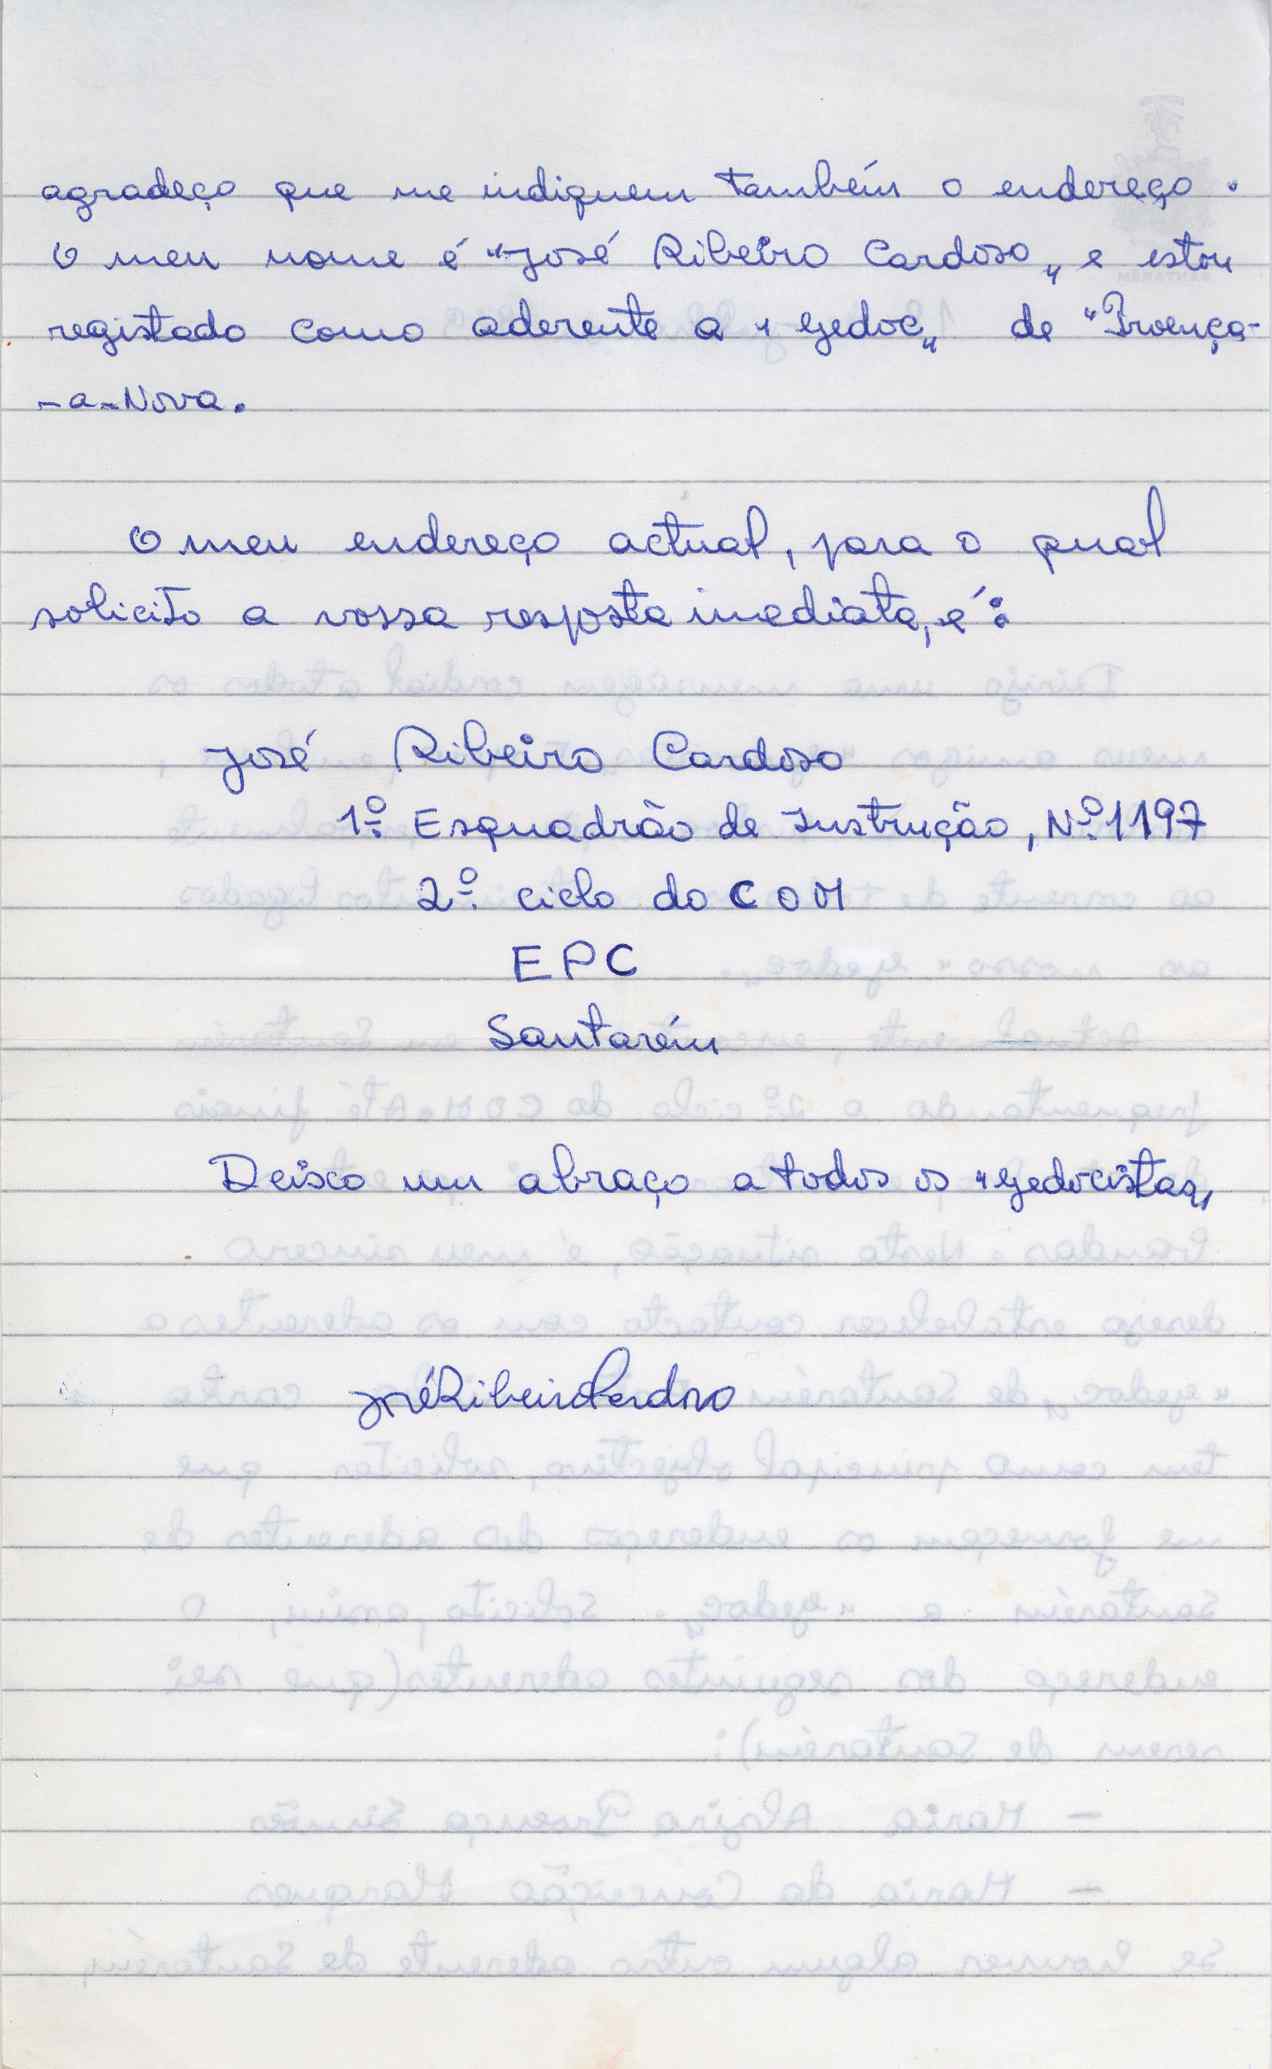 agradeço que me indiquem também o endereço.
O meu nome é "José Ribeiro Cardoso" e estou
registado como aderente a "Gedoc" de "Proença-
-a-Nova.
O meu endereço actual, para o qual
solicito a vossa resposta imediata, é:
José Ribeiro Cardoso
1º Esquadrão de Instrução, Nº 1197
2º ciclo do COM
EPC
Santarém
Deixo um abraço a todos os "gedocistas"
José Ribeiro Cardoso